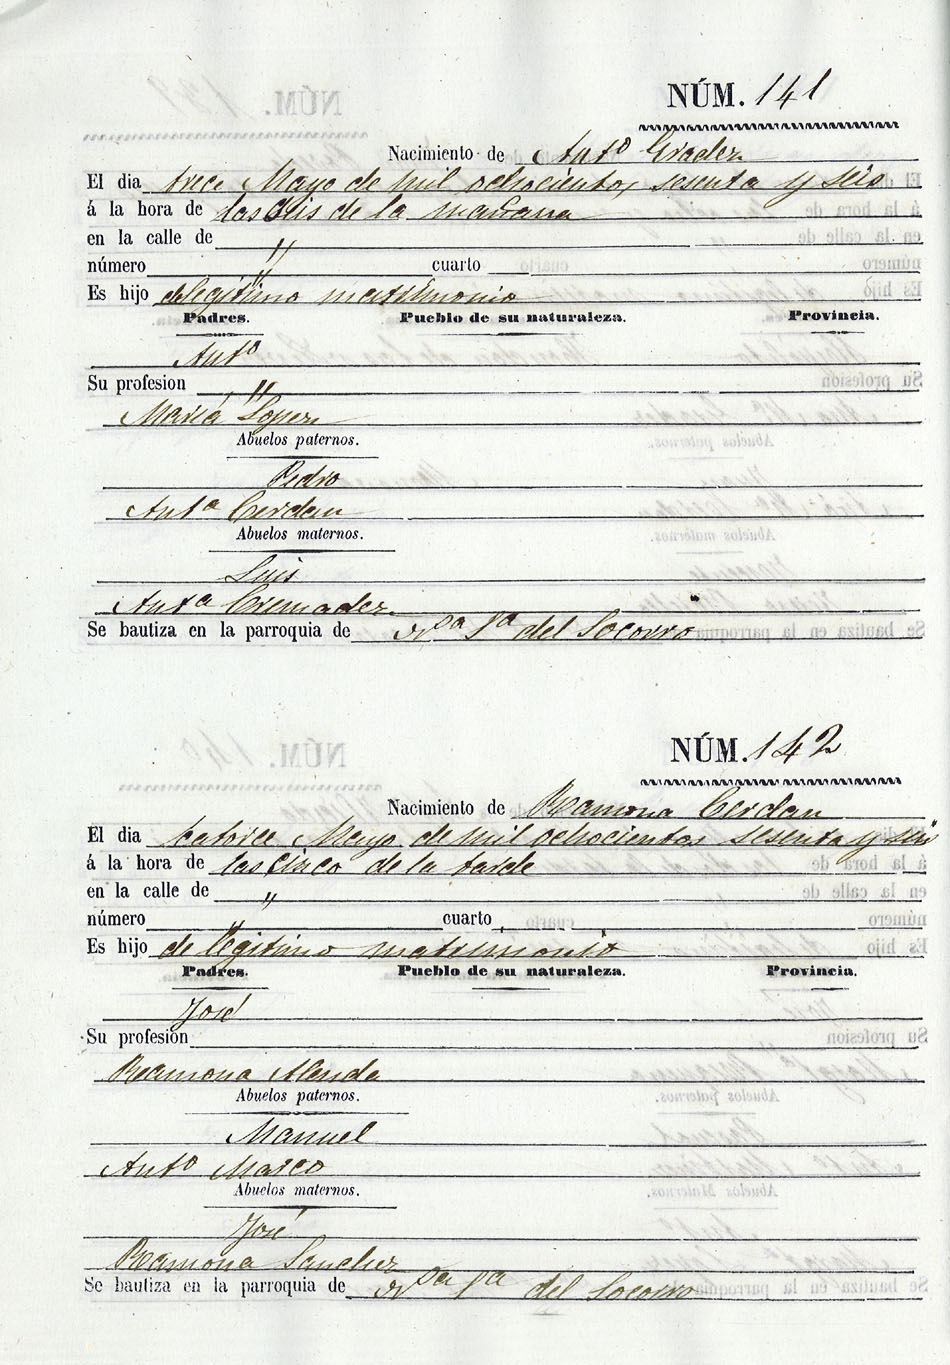 NÚM. 141
Nacimiento de Antº
El dia trece Mayo de mil ochocientos, sesenta y seis
á la hora de las seis de la mañana
en la calle de "
número " cuarto
Es hijo de legitimo matrimonio
Padres. Pueblo de su naturaleza. Provincia.
Antº
Su profesion "
Maria Lopez
Abuelos paternos.
Pedro
Antª Cerdan
Abuelos maternos.
Luis
Antª Cremadez
Se bautiza en la parroquia de Nª Sª del Socorro
NÚM. 142
Nacimiento de Ramona Cerdan
El dia catorce Mayo de mil ochocientos sesenta y seis
á la hora de las cinco de la tarde
en la calle de "
número " cuarto
Es hijo de legitimo matrimonio
Padres. Pueblo de su naturaleza. Provincia.
José
Su profesión
Ramona Alenda
Abuelos paternos.
Manuel
Antª Marco
Abuelos maternos.
José
Ramona Sanchez
Se bautiza en la parroquia de Nª Sª del Socorro